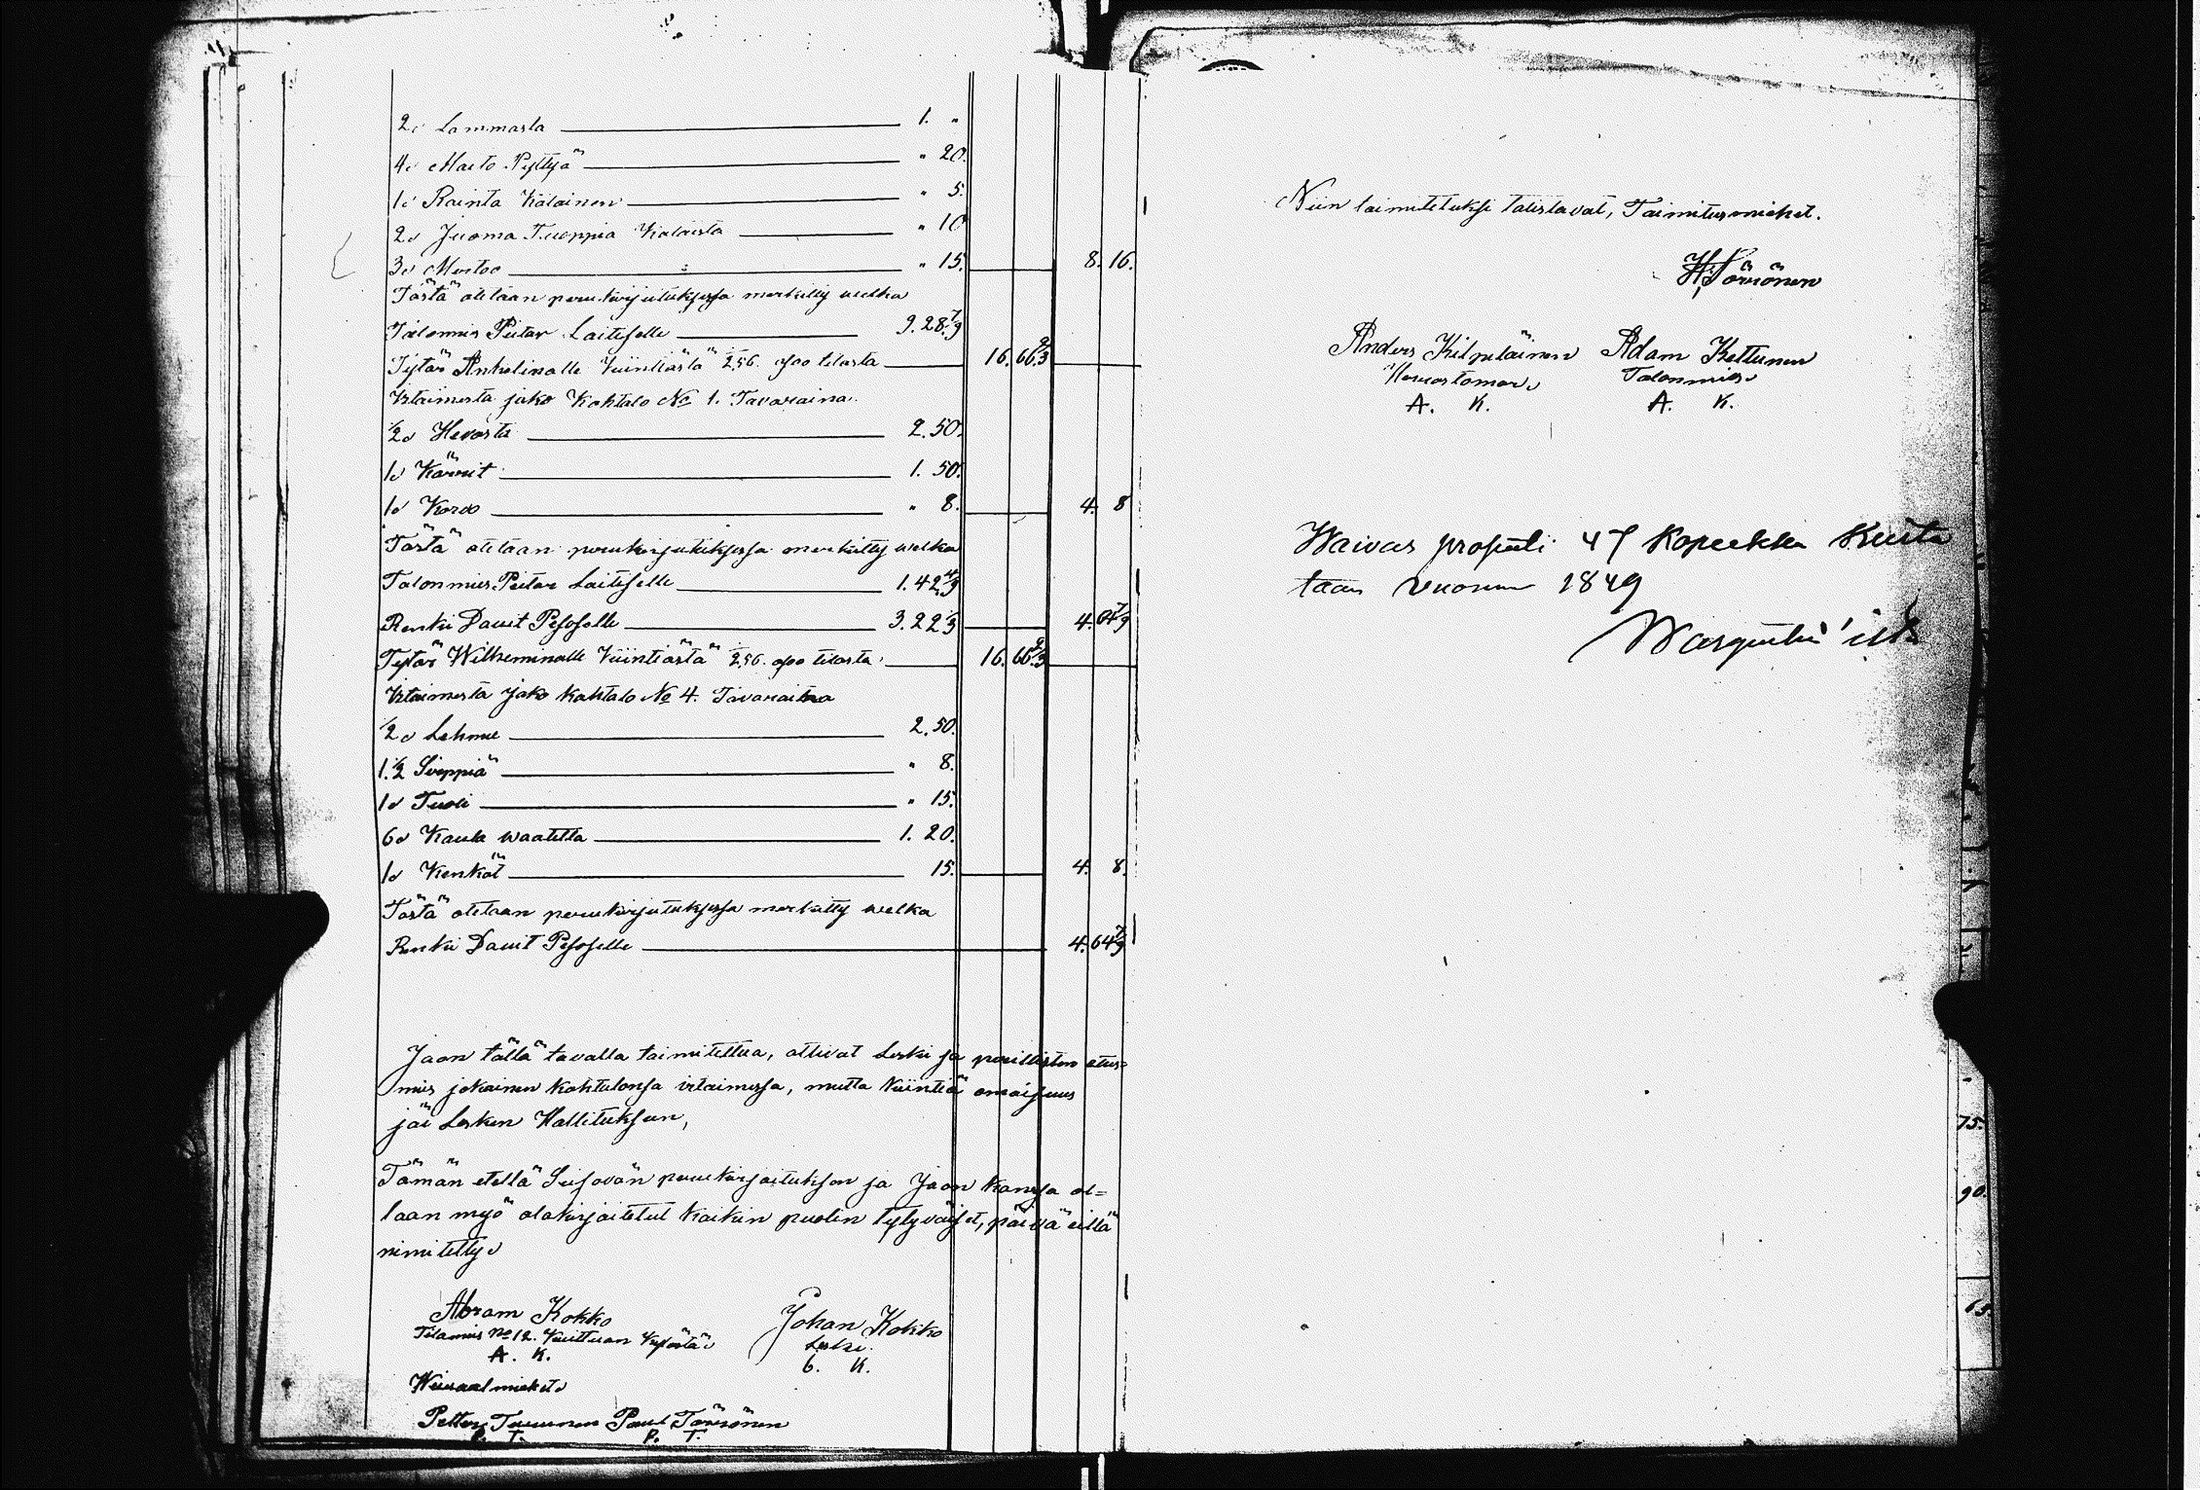 2d Lammasta 1. "
4d Maito Pyttyä " 20.
1d Rainta Kalainen " 5.
2d Juoma Tuoppia Kalaista " 10
3d " 15. 8. 16.
Tästä otetaan perukirjutuksessa merkitty welka
Talonmies Pietar Laiteselle 9.28.7/9
Tytär Ankelinalle Kiintiästä 256. oso tilasta 16. 66 2/3
Irtaimesta jako Kohtalo No 1. Tavaraina.
1/2d Hevosta 2.50.
1d Kärrit 1. 50.
1d Korvo " 8. 4. 8
Tästä otetaan perukirjutuksessa merkitty welka
Talonmies Pietar Laiteselle 1.42 4/9
Renki Dauit Pesoselle 3.22 1/3 4. 64 7/9
Tytär Wilheminalle Kiintiästä 256. oso tilasta 16. 66 2/3
Irtaimesta jako kohtalo No 4. Tavaraina
1/2d Lehmä 2.50.
1.1/2 " 8.
1d Tuoli " 15.
6d Kaula waatetta 1. 20.
1d Kenkät 15. 4. 8.
Tästä otetaan perukirjutuksessa merkitty welka
Renki Dauit Pesoselle 4. 64 7/9
Jaon tällä tavalla toimitettua, ottivat Leski ja perillisten etus=
mies jokainen kohtalonsa irtaimessa, mutta kiintiä omaisuus
jäi Lesken Hallituksen,
Tämän etellä Seisovän perukirjoituksen ja Jaon kanssa ol=
laan myö alakirjoitetut kaikin puolin tytyväiset, päivä eillä
nimitetty
Abram Kokko
Tilamies No 12. Kylästä
A. K.
Johan Kokko
Leski.
K.
Wieraalmiehet
Petter Turunen Paul Törrönen
P. T. P. T.
Niin toimitetuksi totistavat, Toimitusmiehet.
H. Törrönen
Anders Kilpeläinen Adam Kettunen
Talonmies
A. K. A. K.
Waivas prosenti 47 Kopeekka Kuita
taan vuonna 1849
75.
90.
65.